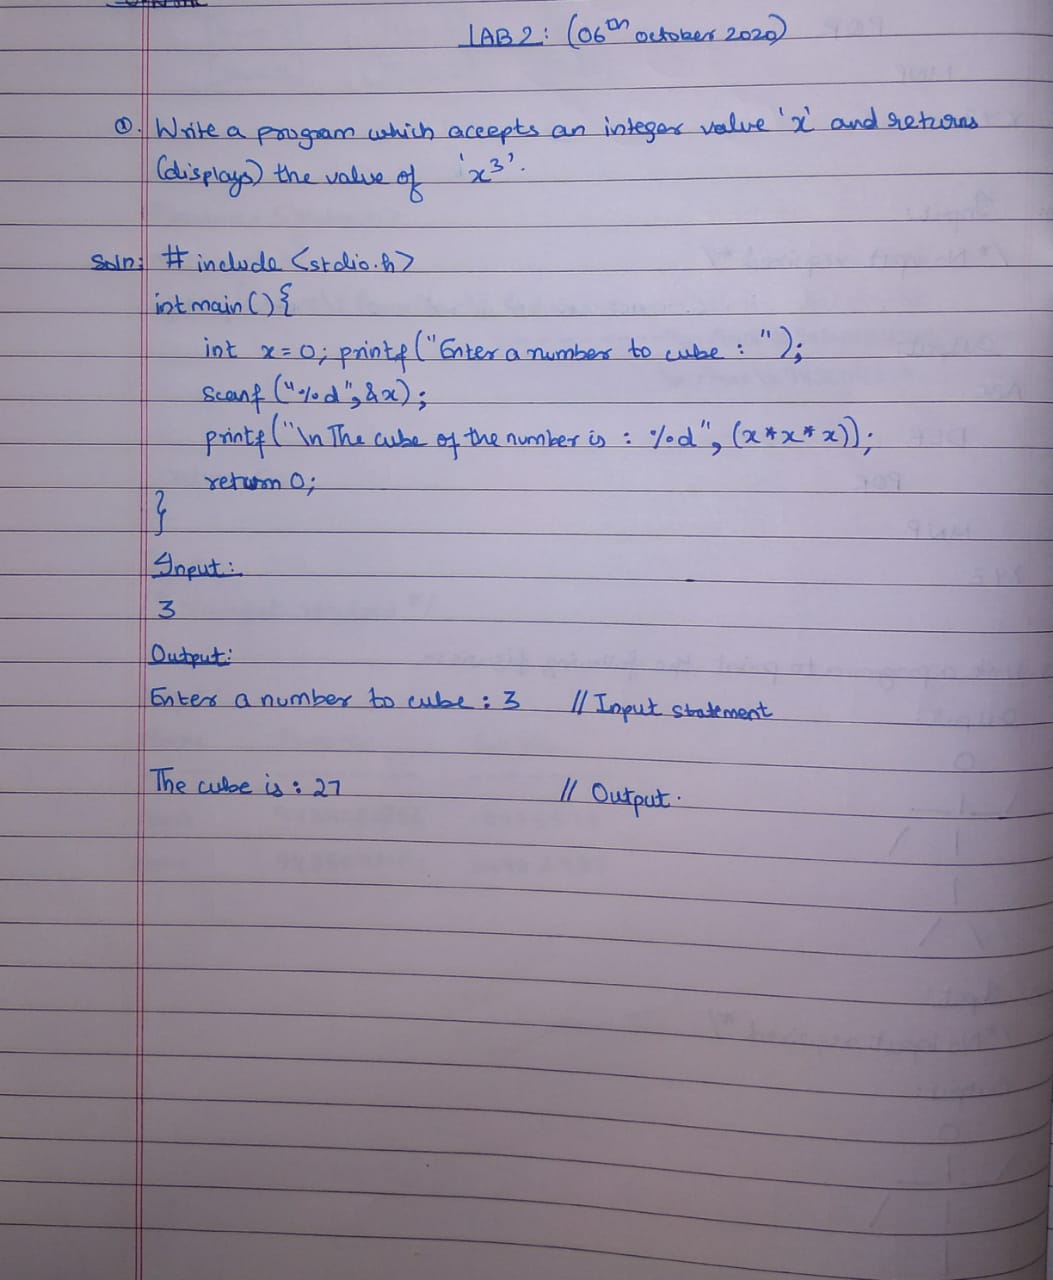 LAB 2: (06th october 2020)
①. Write a program which accepts an integer value 'x' and returns
(displays) the value of 'x³'.
Soln: # include <stdio.h>
int main () {
int x = 0; printf ("Enter a number to cube : ");
scanf ("%d", &x);
printf ("\n The cube of the number is : %d", (x*x*x));
return 0;
}
Input:
3
Output:
Enter a number to cube : 3 // Input statement
The cube is : 27 // Output.